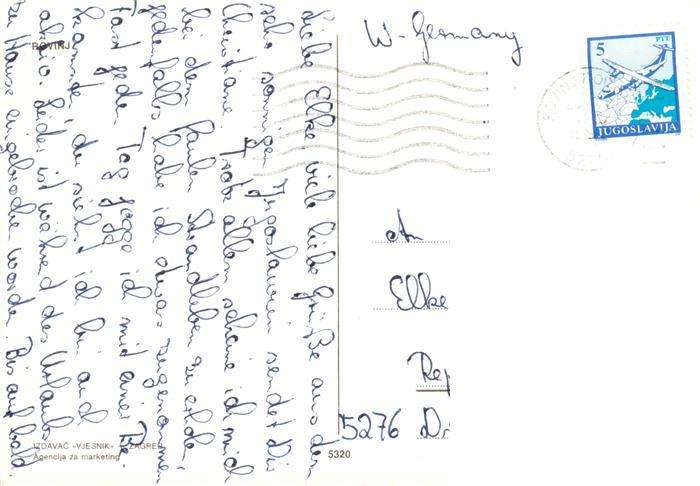 ROVINJ
Liebe Elke, viele liebe Grüße aus dem
sehr sonnigen Jugoslavien sendet Dir
Christiane. Trotz allem scheine ich mich
bei dem faulen Strandleben zu
jedenfalls habe ich etwas zugenommen
Fast jeden Tag jogge ich mit einer Be-
kannte, du siehst ich bin auch
aktiv. Leider ist während des Urlaubs
zu Hause eingebrochen worden. Bis auf bald.
IZDAVAČ »VJESNIK« - ZAGREB
Agencija za marketing
5320
W-Germany
5 PTT
JUGOSLAVIJA
An
Elke
Rep
5276 Di